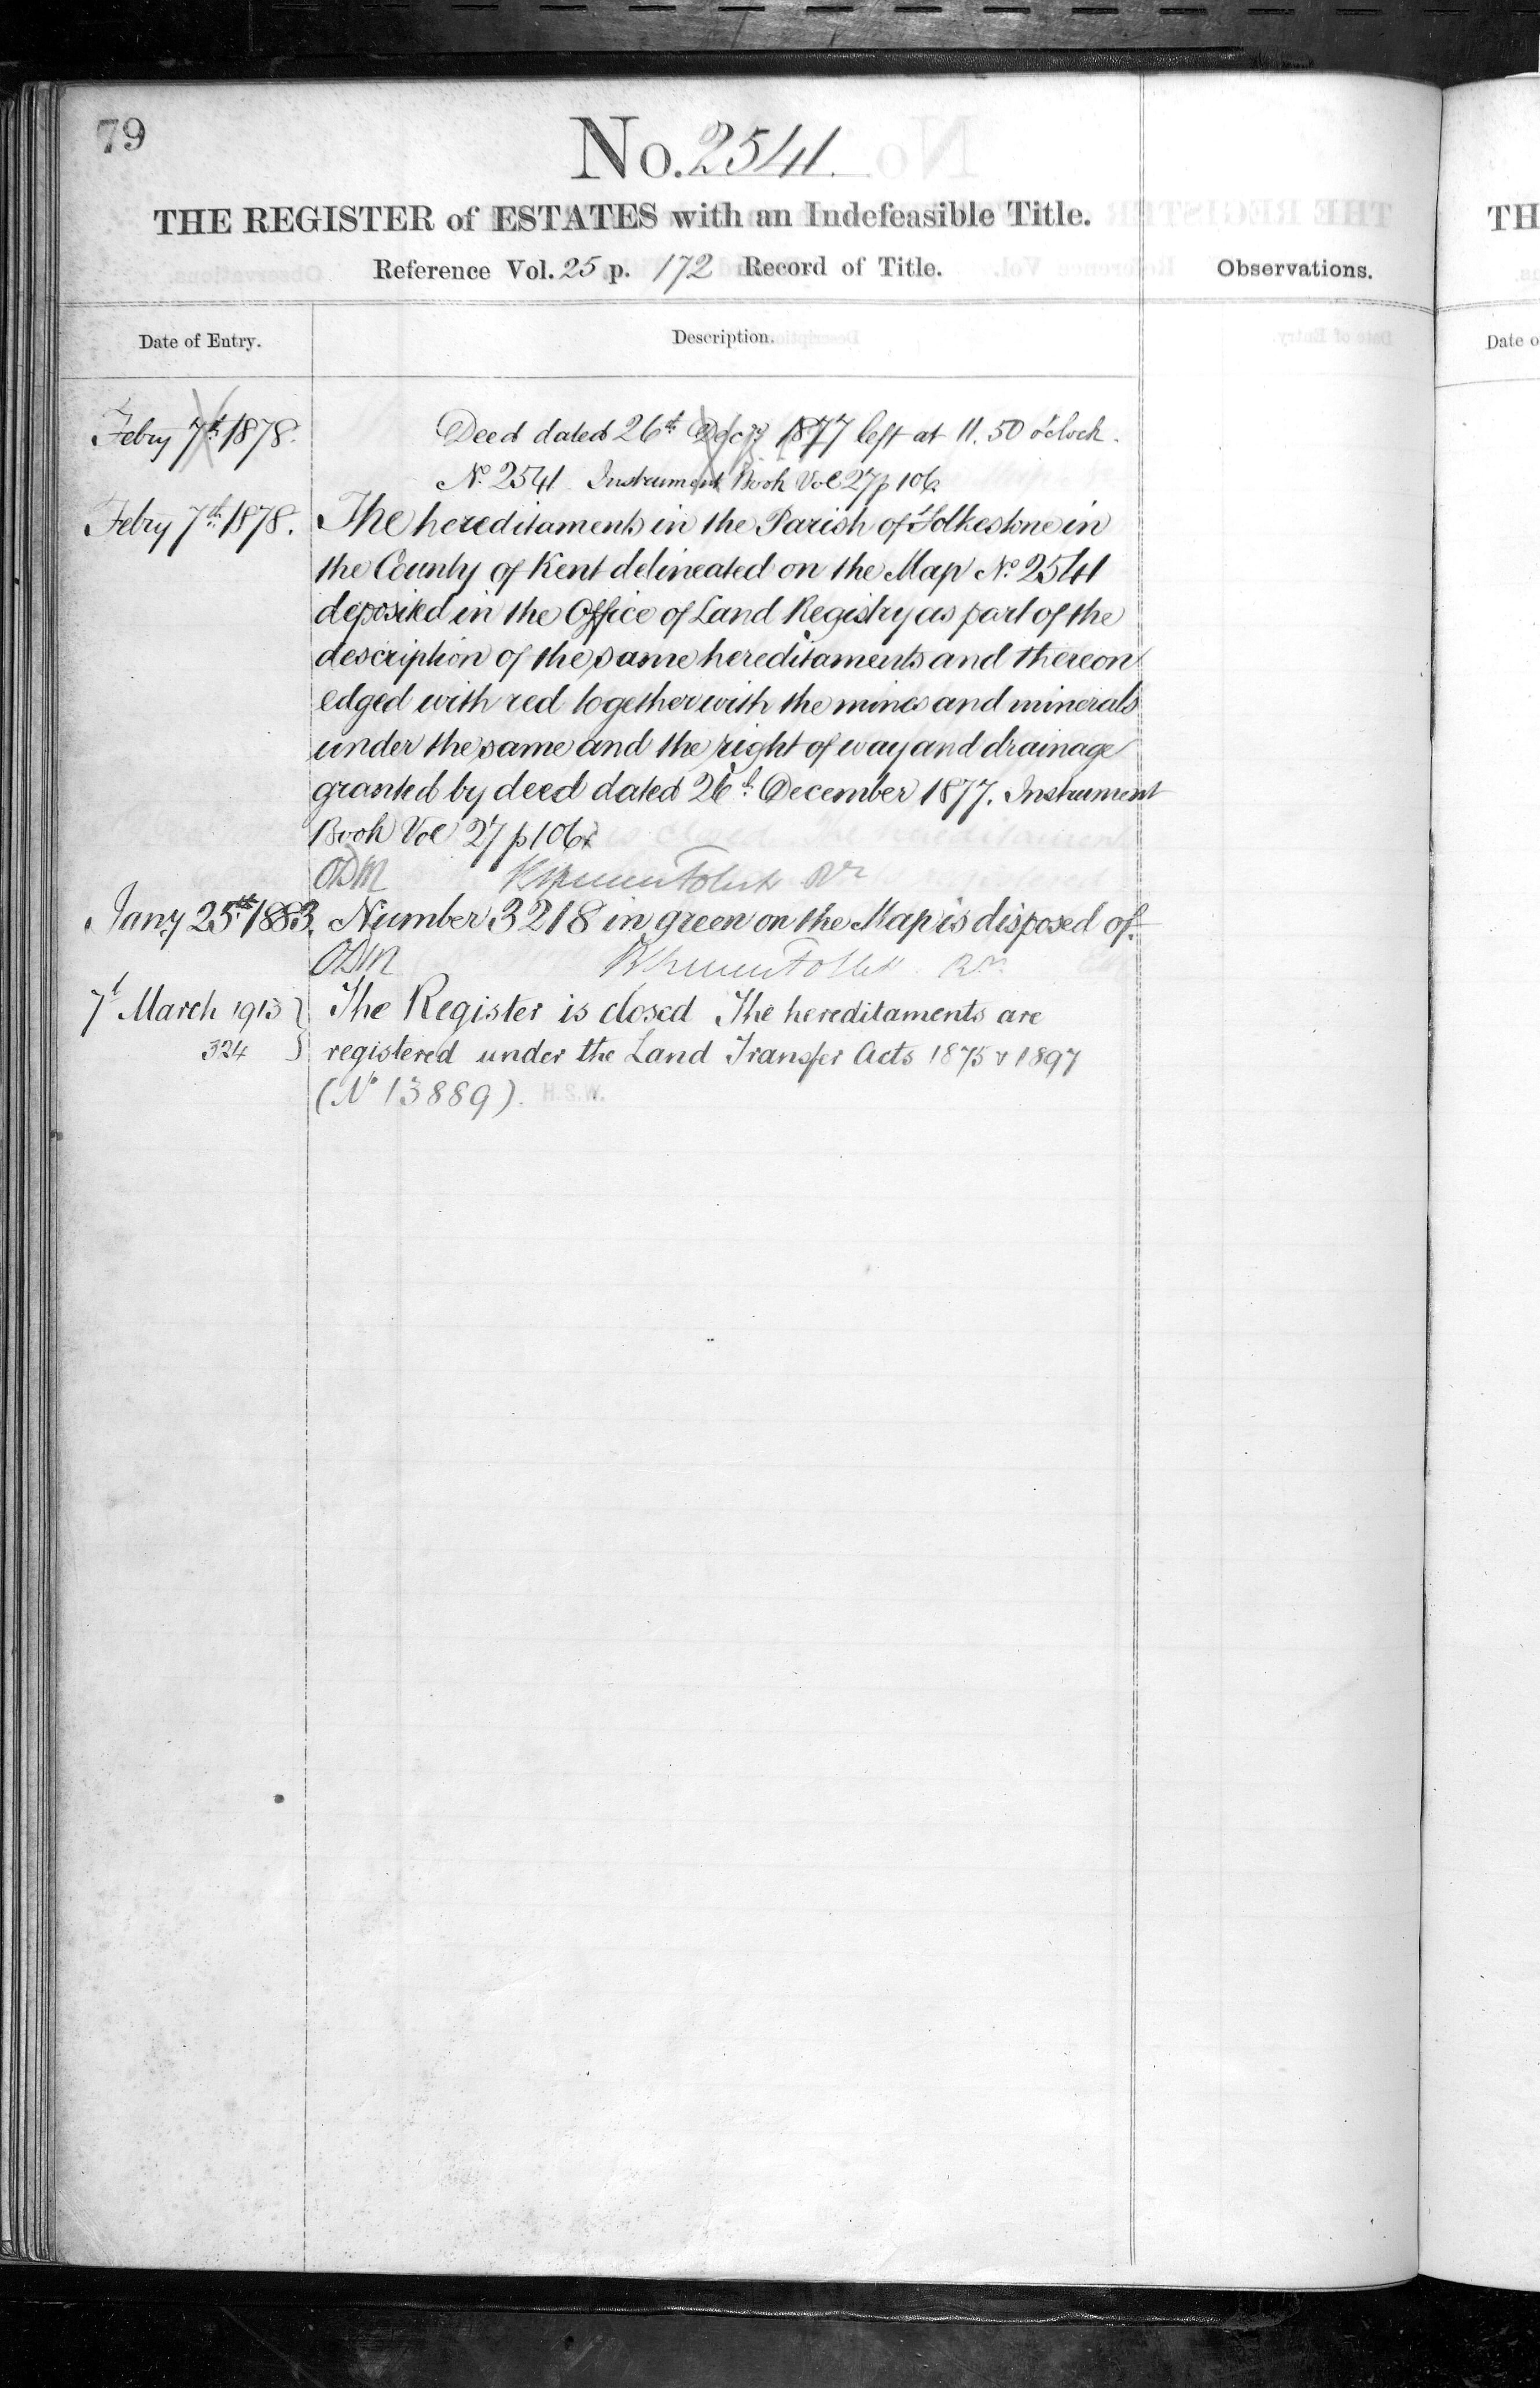 79
No. 2541.
THE REGISTER of ESTATES with an Indefeasible Title.
Reference Vol. 25 p. 172 Record of Title.
Observations.
TH
Date of Entry.
Description.
Date o
Febry 7th 1878. Deed dated 26th Decr 1877 left at 11.50 o'clock.
No. 2541 Instrument Book Vol 27 p 106
Febry 7th 1878. The hereditaments in the Parish of Folkestone in
the County of Kent delineated on the Map No. 2541
deposited in the Office of Land Registry as part of the
description of the same hereditaments and thereon
edged with red together with the mines and minerals
under the same and the right of way and drainage
granted by deed dated 26th December 1877. Instrument
Book Vol 27 p 106
ODM
Jany 25th 1883. Number 3218 in green on the Map is disposed of.
ODM
7th March 1913 The Register is closed The hereditaments are
324 registered under the Land Transfer Acts 1875 & 1897
(No 13889). H.S.W.